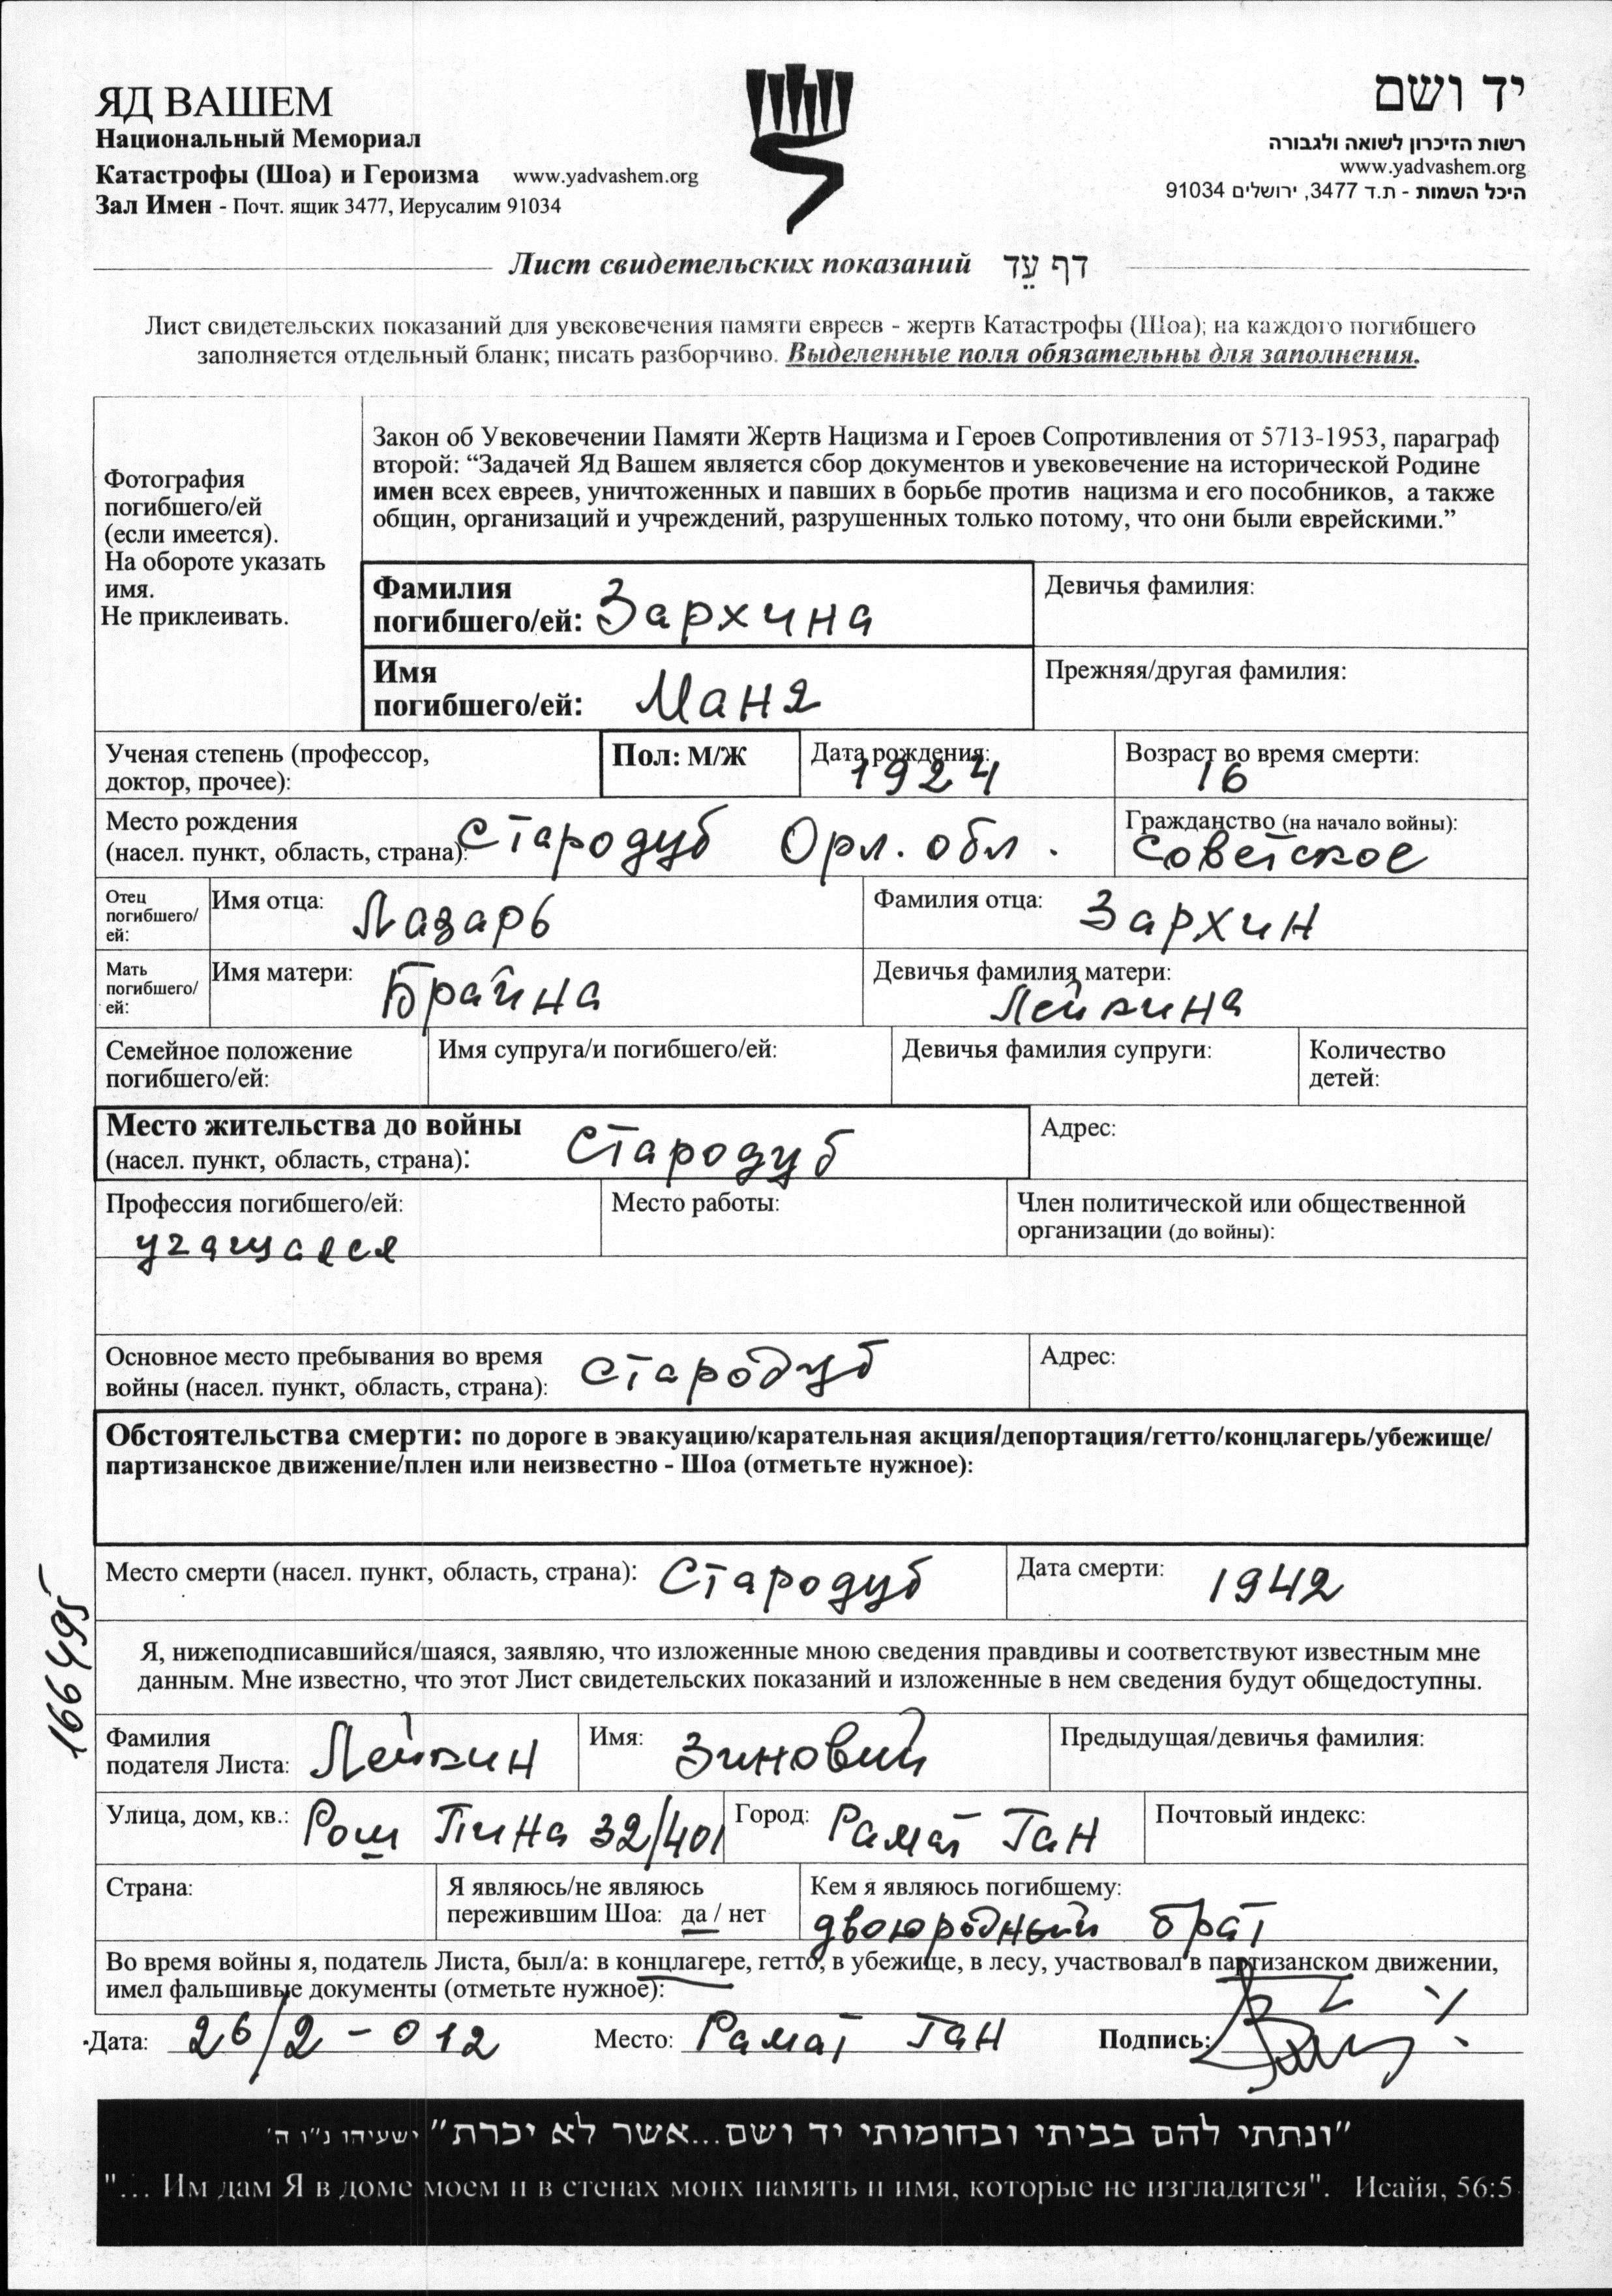 ЯД ВАШЕМ
Национальный Мемориал
Катастрофы (Шоа) и Героизма www.yadvashem.org
Зал Имен - Почт. ящик 3477, Иерусалим 91034
יד ושם
רשות הזיכרון לשואה ולגבורה
www.yadvashem.org
היכל השמות - ת.ד 3477, ירושלים 91034
Лист свидетельских показаний דף עֵד
Лист свидетельских показаний для увековечения памяти евреев - жертв Катастрофы (Шоа); на каждого погибшего
заполняется отдельный бланк; писать разборчиво. Выделенные поля обязательны для заполнения.
Фотография
погибшего/ей
(если имеется).
На обороте указать
имя.
Не приклеивать.
Закон об Увековечении Памяти Жертв Нацизма и Героев Сопротивления от 5713-1953, параграф
второй: “Задачей Яд Вашем является сбор документов и увековечение на исторической Родине
имен всех евреев, уничтоженных и павших в борьбе против нацизма и его пособников, а также
общин, организаций и учреждений, разрушенных только потому, что они были еврейскими.”
Фамилия
погибшего/ей: Зархина
Девичья фамилия:
Имя
погибшего/ей: Маня
Прежняя/другая фамилия:
Ученая степень (профессор,
доктор, прочее):
Пол: М/Ж
Дата рождения:
1924
Возраст во время смерти:
16
Место рождения
(насел. пункт, область, страна): Стародуб Орл. обл.
Гражданство (на начало войны):
Советское
Отец
погибшего/
ей:
Имя отца: Лазарь
Фамилия отца: Зархин
Мать
погибшего/
ей:
Имя матери: Брайна
Девичья фамилия матери:
Лейкина
Семейное положение
погибшего/ей:
Имя супруга/и погибшего/ей:
Девичья фамилия супруги:
Количество
детей:
Место жительства до войны
(насел. пункт, область, страна): Стародуб
Адрес:
Профессия погибшего/ей:
учащаяся
Место работы:
Член политической или общественной
организации (до войны):
Основное место пребывания во время
войны (насел. пункт, область, страна): Стародуб
Адрес:
Обстоятельства смерти: по дороге в эвакуацию/карательная акция/депортация/гетто/концлагерь/убежище/
партизанское движение/плен или неизвестно - Шоа (отметьте нужное):
Место смерти (насел. пункт, область, страна): Стародуб
Дата смерти: 1942
166495
Я, нижеподписавшийся/шаяся, заявляю, что изложенные мною сведения правдивы и соответствуют известным мне
данным. Мне известно, что этот Лист свидетельских показаний и изложенные в нем сведения будут общедоступны.
Фамилия
подателя Листа: Лейкин
Имя: Зиновий
Предыдущая/девичья фамилия:
Улица, дом, кв.: Рош Пина 32/401
Город: Рамат Ган
Почтовый индекс:
Страна:
Я являюсь/не являюсь
пережившим Шоа: да / нет
Кем я являюсь погибшему:
двоюродный брат
Во время войны я, податель Листа, был/а: в концлагере, гетто, в убежище, в лесу, участвовал в партизанском движении,
имел фальшивые документы (отметьте нужное):
Дата: 26/2-012 Место: Рамат Ган Подпись:
"ונתתי להם בביתי ובחומותי יד ושם...אשר לא יכרת" ישעיהו נ"ו ה'
"... Им дам Я в доме моем и в стенах моих память и имя, которые не изгладятся". Исайя, 56:5